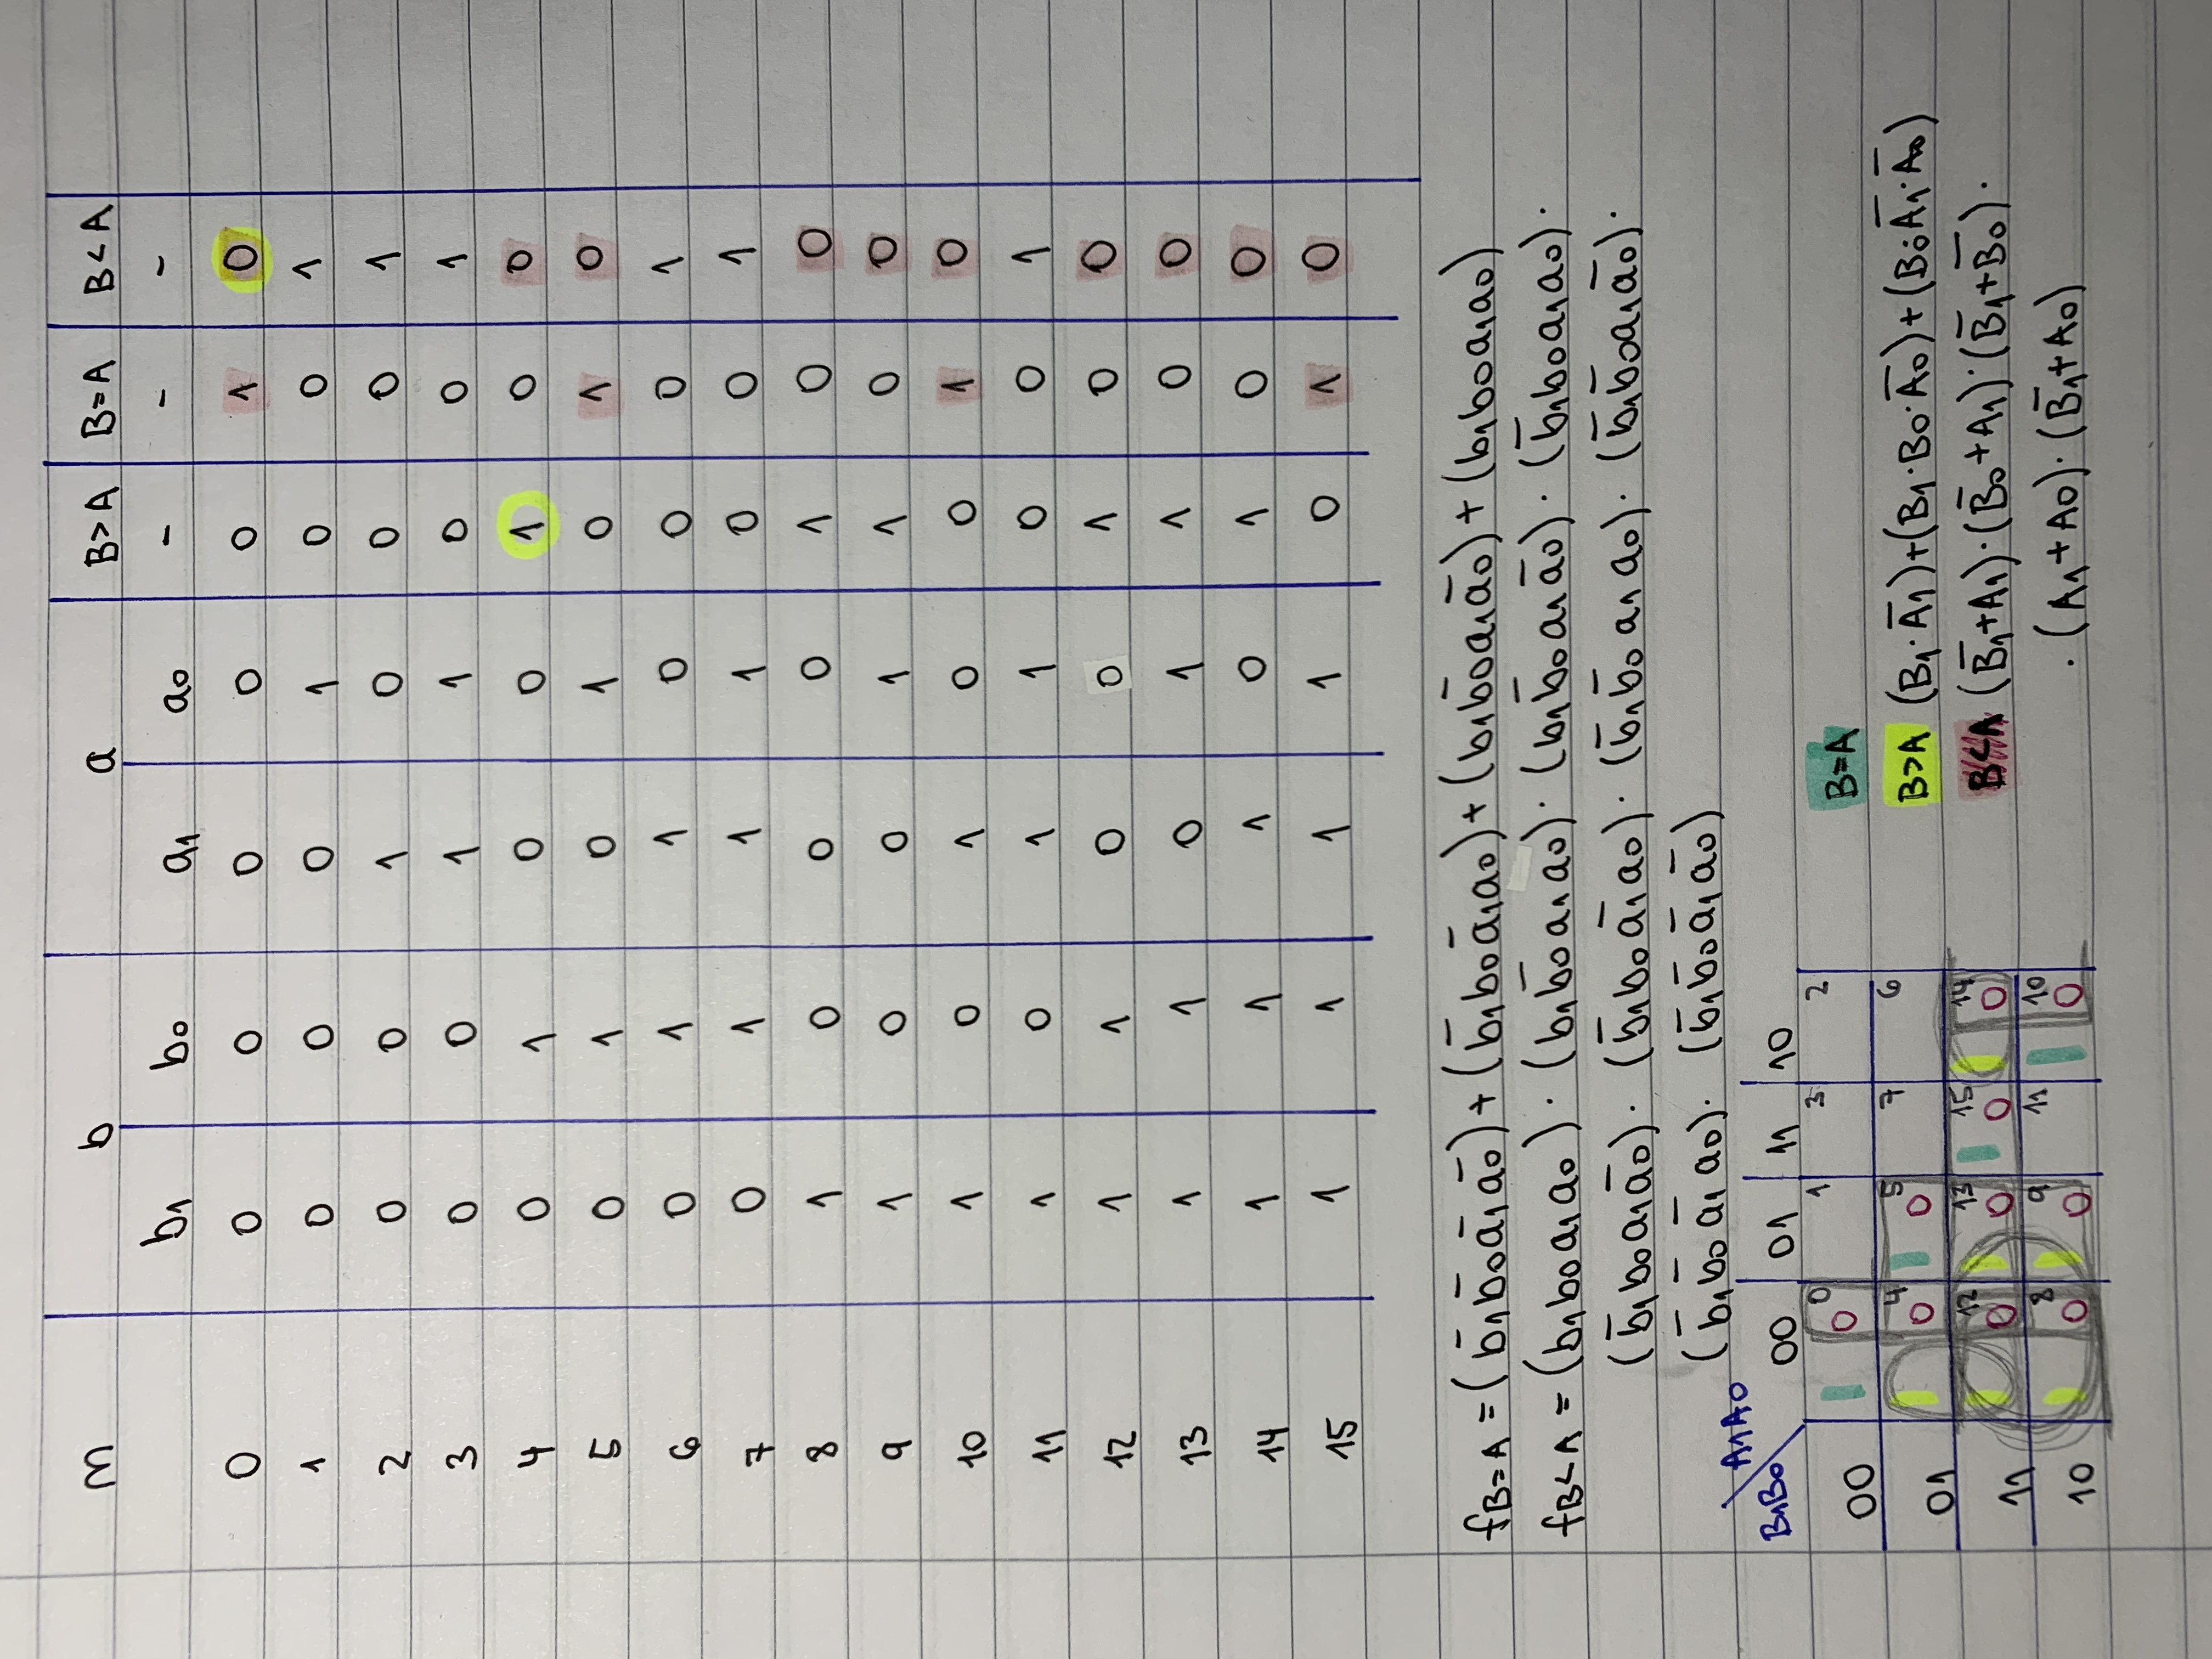 m b a B>A B=A B<A
b₁ b₀ a₁ a₀ - - -
0 0 0 0 0 0 1 0
1 0 0 0 1 0 0 1
2 0 0 1 0 0 0 1
3 0 0 1 1 0 0 1
4 0 1 0 0 1 0 0
5 0 1 0 1 0 1 0
6 0 1 1 0 0 0 1
7 0 1 1 1 0 0 1
8 1 0 0 0 1 0 0
9 1 0 0 1 1 0 0
10 1 0 1 0 0 1 0
11 1 0 1 1 0 0 1
12 1 1 0 0 1 0 0
13 1 1 0 1 1 0 0
14 1 1 1 0 1 0 0
15 1 1 1 1 0 1 0
f_B=A = (b̅₁b̅₀a̅₁a̅₀) + (b̅₁b₀a̅₁a₀) + (b₁b̅₀a₁a̅₀) + (b₁b₀a₁a₀)
f_B<A = (b₁b₀a₁a₀) · (b₁b̅₀a₁a₀) · (b₁b̅₀a₁a̅₀) · (b̅₁b₀a₁a₀) ·
(b̅₁b₀a₁a̅₀) · (b̅₁b₀a̅₁a₀) · (b̅₁b̅₀a₁a₀) · (b̅₁b̅₀a₁a̅₀) ·
(b̅₁b̅₀a̅₁a₀) · (b̅₁b̅₀a̅₁a̅₀)
A₁A₀
B₁B₀ 00 01 11 10
00 0 0 1 3 2
01 0 4 0 5 7 6
11 0 12 0 13 0 15 0 14
10 0 8 0 9 11 0 10
B=A
B>A (B₁·A̅₁)+(B₁·B₀·A̅₀)+(B₀·A̅₁·A̅₀)
B<A (B̅₁+A₁)·(B̅₀+A₁)·(B̅₁+B̅₀)·
·(A₁+A₀)·(B̅₁+A₀)